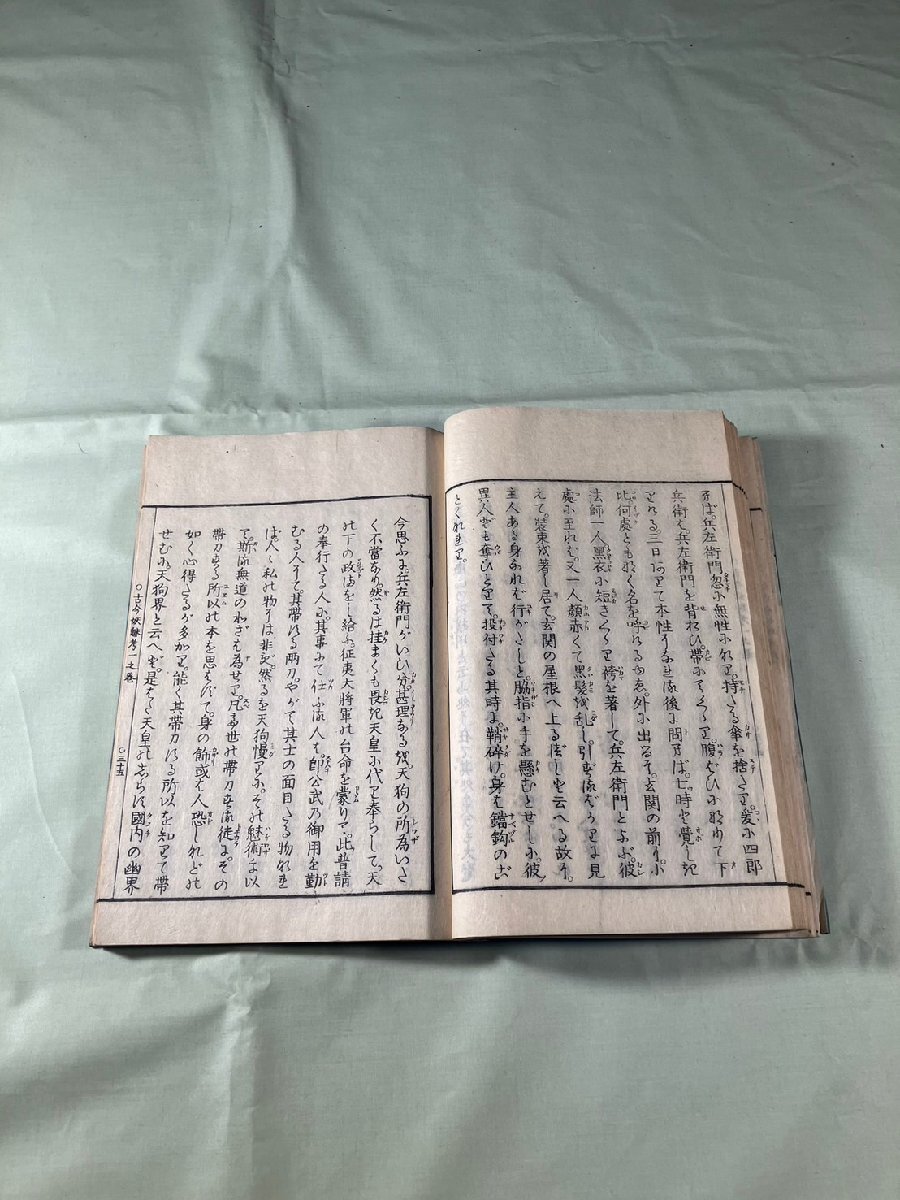 ば兵左衛門忽に無性になりて持たる傘を捨たり爰に四郎
兵衛も兵左衛門を背おひ帯にてくゝり腹ばひになりて下
たれる三日ありて本性になれる後に問ば七時と覚しき
比何處ともなく名を呼れる故外に出るに玄関の前に小
法師一人黒衣に短きくゝり袴を著して兵左衛門とよぶ彼
處に至れば又一人顔赤くて黒髪を乱し引ずるばかりに見
えて裝束を著し居て玄関の屋根へ上るべしと云へる故に
主人ある身なれば行がたしと脇指に手を懸むとせしに彼
異人ども奪ひとりて投付たる其時に鞘碎け身も鐺鉤のお
とくなれり
今思ふに兵左衛門がいひ分甚理あるを天狗の所為いた
く不當なり然るは挂まくも畏き天皇に代り奉らして天
の下の政治をし給ふ征夷大將軍の台命を蒙りて此普請
の奉行たる人に其事にて仕ふる人も即公武乃御用を勤
むる人にて其帯たる両刀やがて其士の面目たる物なれ
ば人々私の物には非ず然るを天狗慢りにその魅術を以
て斯る無道のわざを為せり凡て當世の帯刀する徒にその
帶刀する所以の本を思はで身の飾或は人恐しれどの
如く心得たるが多かり能く其帶刀たる所以を知りて帯
せむに天狗界と云へど是はた天皇のしらす國内の幽界
○古今妖魅考一之巻
○三十五